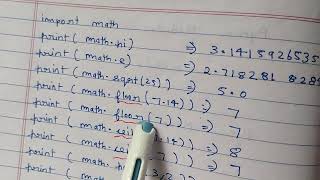 import math
print( math.pi) => 3.1415926535
print( math.e) => 2.718281 828
print( math.sqrt(25)) => 5.0
print( math.floor(7.14)) => 7
print( math.floor(7)) => 7
print( math.ceil( .14)) => 8
print( math. (7)) => 7
print( math.